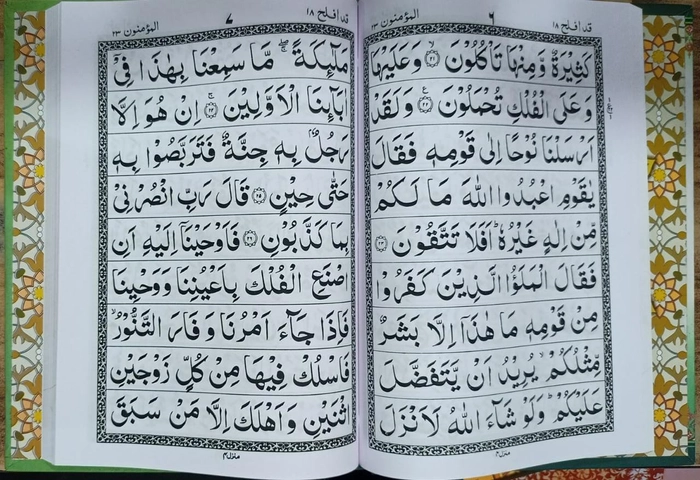 قد افلح ١٨
٦
المؤمنون ٢٣
كَثِيْرَةٌ وَّمِنْهَا تَاْكُلُوْنَ ﴿٢١﴾ وَعَلَيْهَا
وَعَلَى الْفُلْكِ تُحْمَلُوْنَ ﴿٢٢﴾ وَلَقَدْ
اَرْسَلْنَا نُوْحًا اِلٰى قَوْمِهٖ فَقَالَ
يٰقَوْمِ اعْبُدُوا اللّٰهَ مَا لَكُمْ
مِّنْ اِلٰهٍ غَيْرُهٗ ؕ اَفَلَا تَتَّقُوْنَ ﴿٢٣﴾
فَقَالَ الْمَلَؤُا الَّذِيْنَ كَفَرُوْا
مِنْ قَوْمِهٖ مَا هٰذَاۤ اِلَّا بَشَرٌ
مِّثْلُكُمْ ۙ يُرِيْدُ اَنْ يَّتَفَضَّلَ
عَلَيْكُمْ ؕ وَلَوْ شَآءَ اللّٰهُ لَاَنْزَلَ
منزل ٤
قد افلح ١٨
٧
المؤمنون ٢٣
مَلٰٓئِكَةً ۖۚ مَّا سَمِعْنَا بِهٰذَا فِیْۤ
اٰبَآئِنَا الْاَوَّلِيْنَ ﴿٢٤﴾ اِنْ هُوَ اِلَّا
رَجُلٌۢ بِهٖ جِنَّةٌ فَتَرَبَّصُوْا بِهٖ
حَتّٰى حِيْنٍ ﴿٢٥﴾ قَالَ رَبِّ انْصُرْنِیْ
بِمَا كَذَّبُوْنِ ﴿٢٦﴾ فَاَوْحَيْنَاۤ اِلَيْهِ اَنِ
اصْنَعِ الْفُلْكَ بِاَعْيُنِنَا وَوَحْيِنَا
فَاِذَا جَآءَ اَمْرُنَا وَفَارَ التَّنُّوْرُ ۙ
فَاسْلُكْ فِيْهَا مِنْ كُلٍّ زَوْجَيْنِ
اثْنَيْنِ وَاَهْلَكَ اِلَّا مَنْ سَبَقَ
منزل ٤